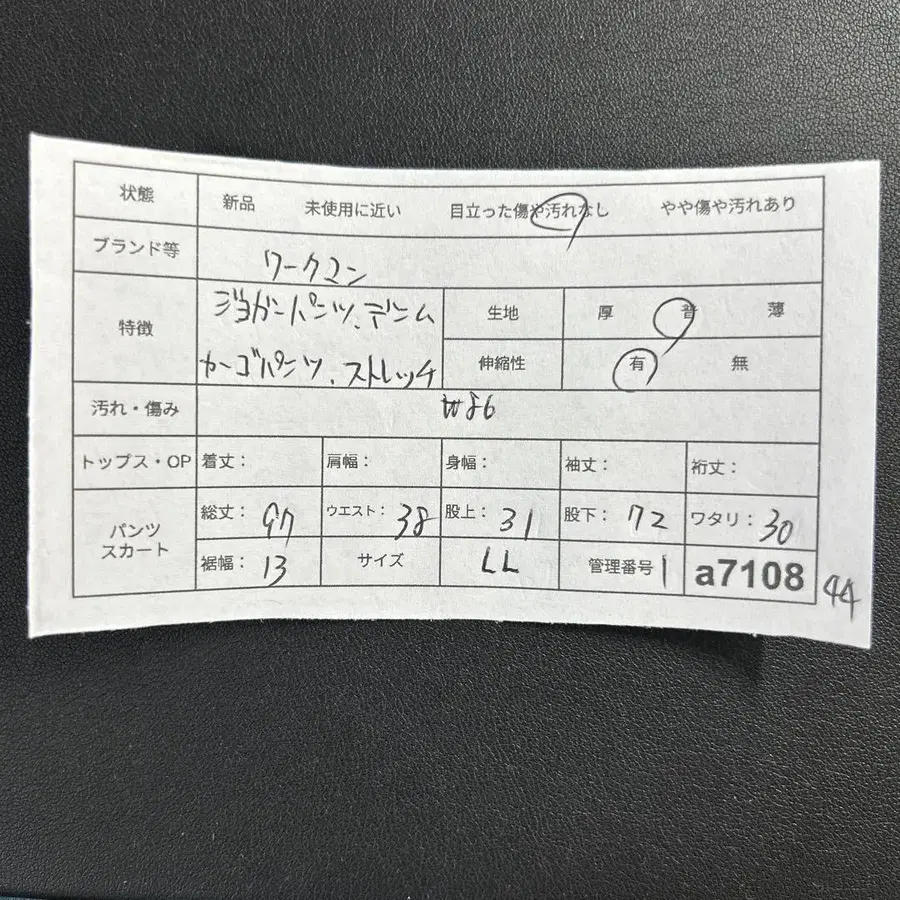 状態 新品 未使用に近い 目立った傷や汚れなし やや傷や汚れあり
ブランド等 ワークマン
特徴 ジョガーパンツ、デニム 生地 厚 普 薄
カーゴパンツ、ストレッチ 伸縮性 有 無
汚れ・傷み W86
トップス・OP 着丈: 肩幅: 身幅: 袖丈: 裄丈:
パンツ スカート 総丈: 97 ウエスト: 38 股上: 31 股下: 72 ワタリ: 30
裾幅: 13 サイズ LL 管理番号 1 a7108 44